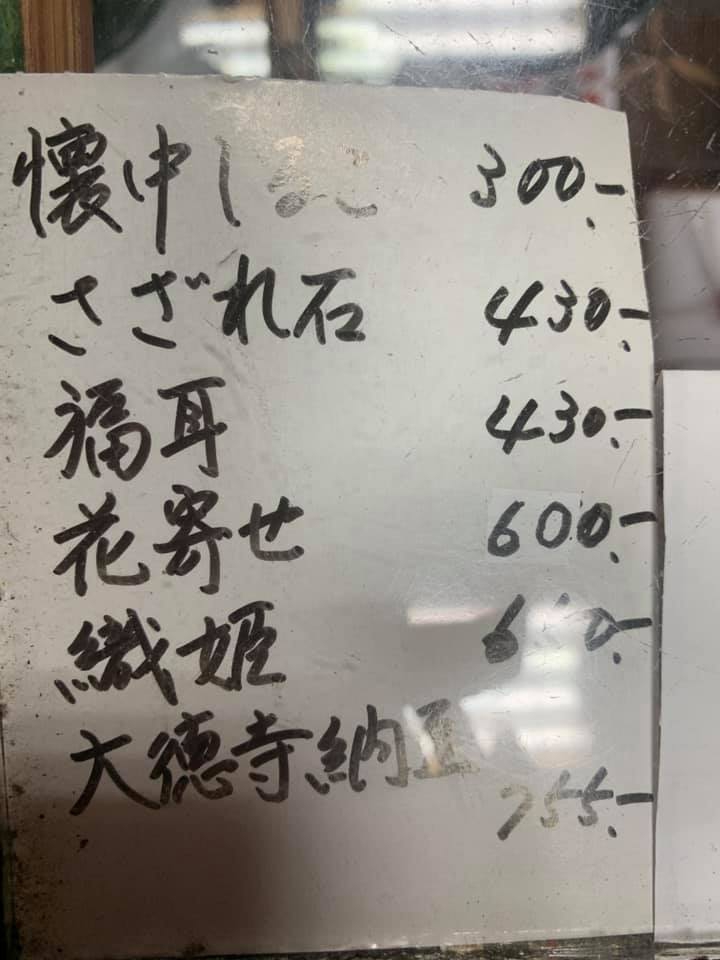 懐中し 300.-
さざれ石 430.-
福耳 430.-
花寄せ 600.-
織姫
大徳寺納豆 755.-